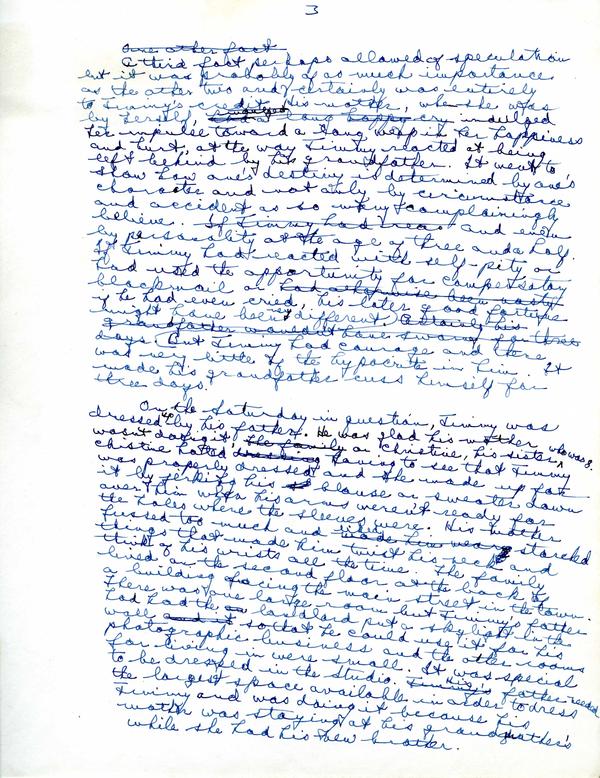 3
One other fact
A third fact perhaps allowed of speculation
but it was probably of as much importance
as the other two and certainly was entirely
to Jimmy's credit. His mother, when she was
by herself, indulged
her impulse toward a long weep in her happiness
and hurt, at the way Jimmy reacted at being
left behind by his grandfather. It went to
show how one's destiny is determined by one's
character and not only by circumstance
and accident as so many complainingly
believe. If Jimmy had and even
by personality at the age of three and a half.
If Jimmy had reacted with self-pity or
had used the opportunity for compensatory
blackmail or had otherwise been nasty
if he had even cried, his later good fortune
might have been different. Certainly his
grandfather wouldn't have swore for three
days. But Jimmy had courage and there
was very little of the hypocrite in him. It
made his grandfather cuss himself for
three days.
On the Saturday in question, Jimmy was
dressed up by his father. He was glad his mother
wasn't doing it the family or Christine, his sister who was 8.
Christine hated having to see that Jimmy
was properly dressed and she made up for
it by jerking his blouse or sweater down
over him when his arms weren't ready for
the holes where the sleeves were. His mother
fussed too much and starched
things that made him twist his neck and
think of his wrists all the time. The family
lived on the second floor, at the back of
a building facing the main street in the town.
There was one large room but Jimmy's father
had had the landlord put a skylight in the
wall and it so that he could use it for his
photographic business and the other rooms
for living in were small. It was special
to be dressed in the studio. Jimmy's father needed
the largest space available in order to dress
Jimmy and was doing it because his
mother was staying at his grandmother's
while she had his new brother.